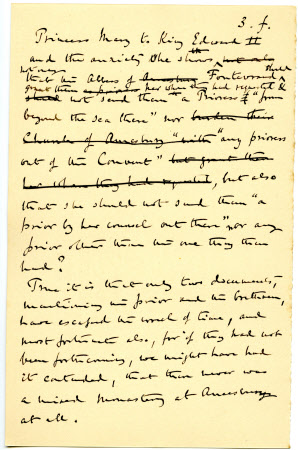 3. f.
Princess Mary to King Edward II
and the anxiety she shows not only
not only
that the Abbess of Amesbury Fontevraud should
grant them a prioress her whom they had requested &
should not send them "a Prioress "from
beyond the sea there" nor burden their
Church of Amesbury "with" any prioress
out of the Convent" but grant them
her whom they had requested, but also
that she should not send them "a
prior by her counsel out there" nor any
prior other than the one they then
had?
True it is that only two documents,
mentioning the prior and the brethren,
have escaped the wreck of time, and
most fortunate also, for if they had not
been forthcoming, we might have had
it contended, that there never was
a mixed monastery at Amesbury
at all.